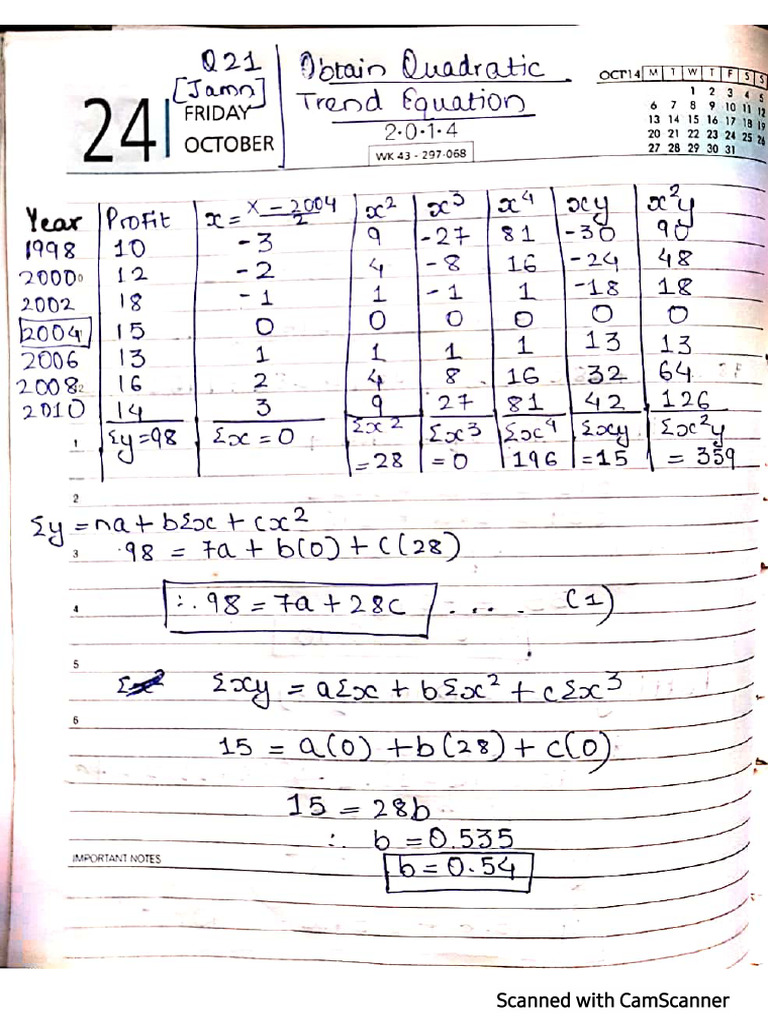 Q21
[Jamn]
24 FRIDAY OCTOBER
Obtain Quadratic
Trend Equation
2·0·1·4
WK 43 - 297-068
OCT14 M T W T F S S
1 2 3 4 5
6 7 8 9 10 11 12
13 14 15 16 17 18 19
20 21 22 23 24 25 26
27 28 29 30 31
Year Profit x = X - 2004 / 2 x² x³ x⁴ xy x²y
1998 10 -3 9 -27 81 -30 90
2000 12 -2 4 -8 16 -24 48
2002 18 -1 1 -1 1 -18 18
2004 15 0 0 0 0 0 0
2006 13 1 1 1 1 13 13
2008 16 2 4 8 16 32 64
2010 14 3 9 27 81 42 126
Σy=98 Σx = 0 Σx² = 28 Σx³ = 0 Σx⁴ 196 Σxy = 15 Σx²y = 359
1
2
Σy = na + bΣx + cx²
3
98 = 7a + b(0) + c(28)
4
∴ 98 = 7a + 28c .... (1)
5
Σx² Σxy = aΣx + bΣx² + cΣx³
6
15 = a(0) + b(28) + c(0)
15 = 28b
∴ b = 0.535
IMPORTANT NOTES
b = 0.54
Scanned with CamScanner